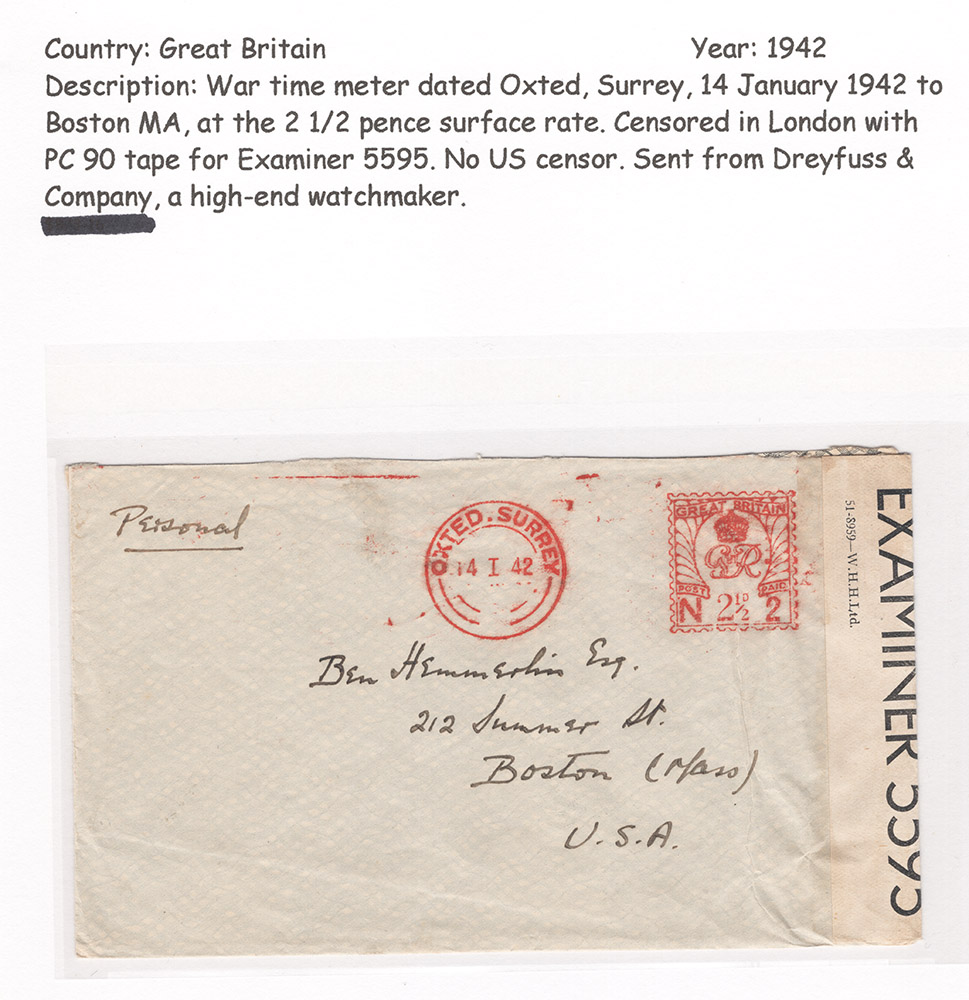 Country: Great Britain Year: 1942
Description: War time meter dated Oxted, Surrey, 14 January 1942 to
Boston MA, at the 2 1/2 pence surface rate. Censored in London with
PC 90 tape for Examiner 5595. No US censor. Sent from Dreyfuss &
Company, a high-end watchmaker.
Personal
OXTED. SURREY
14 I 42
GREAT BRITAIN
GR
POST PAID
N 2½D 2
51-8959—W.H.H.Ltd.
EXAMINER 5595
Ben Hemmerlin Esq.
212 Summer St.
Boston (Mass)
U.S.A.